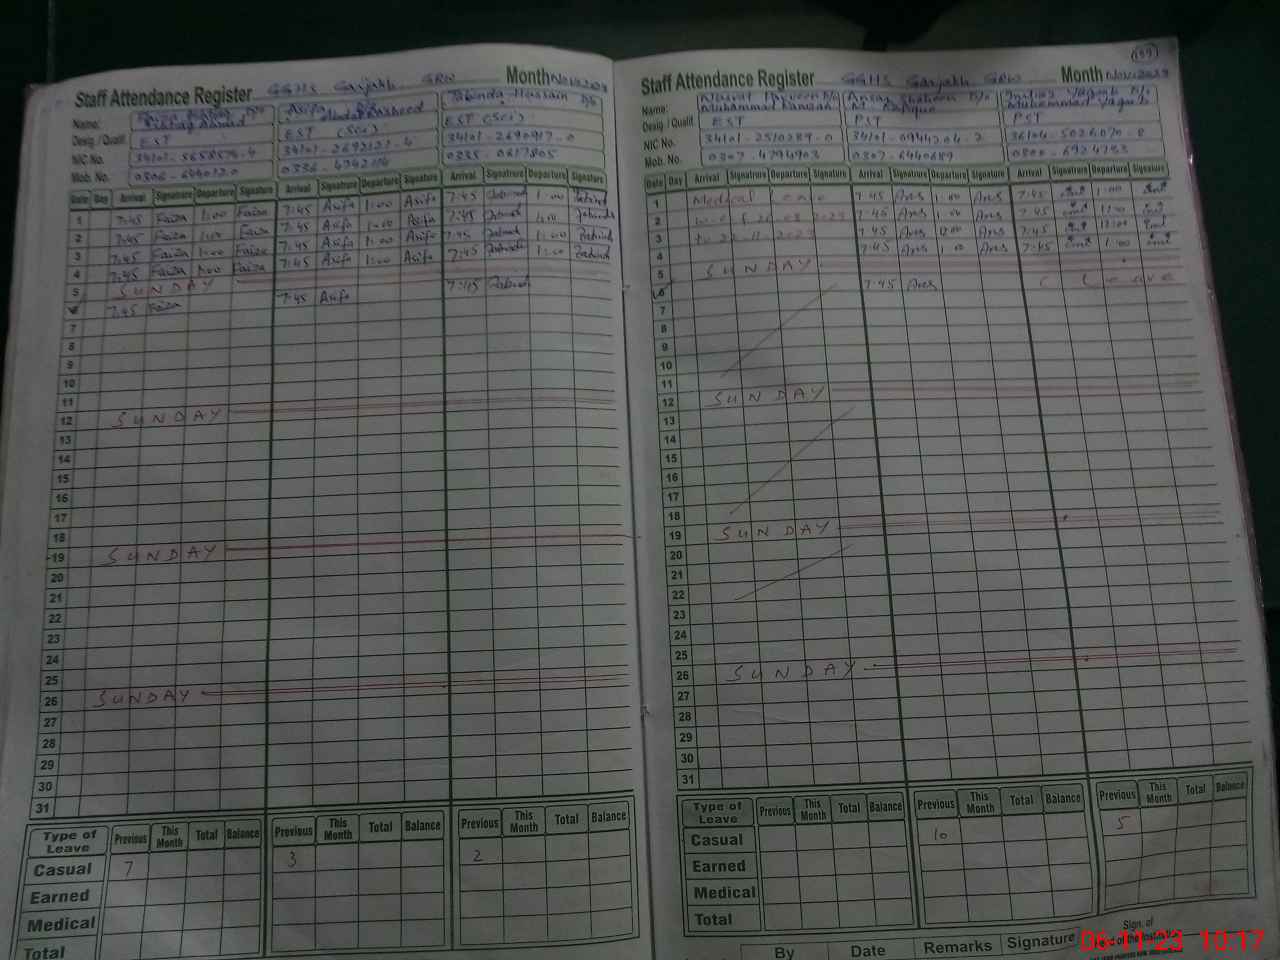 Staff Attendance Register GGHS Garjakh GRW Month Nov.2023
Name: Ishtiaq Ahmad
Desig. / Qualif. EST
NIC No. 34101-5658576-4
Mob. No.
Asifa Abdul Rasheed
EST (Sci)
34101-2692121-4
0336-4742114
Tabinda Hussain D/o
EST (Sci)
34101-2690917-0
0335-0617805
Date Day Arrival Signature Departure Signature Arrival Signature Departure Signature Arrival Signature Departure Signature
1 7:45 Faiza 1:00 Faiza 7:45 Asifa 1:00 Asifa 7:45 Tabinda 1:00 Tabinda
2 7:45 Faiza 1:00 Faiza 7:45 Asifa 1:00 Asifa 7:45 Tabinda 1:00 Tabinda
3 7:45 Faiza 1:00 Faiza 7:45 Asifa 1:00 Asifa 7:45 Tabinda 1:00 Tabinda
4 7:45 Faiza 1:00 Faiza 7:45 Asifa 1:00 Asifa 7:45 Tabinda 1:00 Tabinda
5 SUNDAY
6 7:45 Faiza 7:45 Asifa 7:45 Tabinda
7
8
9
10
11
12 SUNDAY
13
14
15
16
17
18
19 SUNDAY
20
21
22
23
24
25
26 SUNDAY
27
28
29
30
31
Type of Leave Previous This Month Total Balance Previous This Month Total Balance Previous This Month Total Balance
Casual 7 3 2
Earned
Medical
Total
199
Staff Attendance Register GGHS Garjakh GRW Month Nov.2023
Name: Muhammad Ramzan
Desig. / Qualif. EST
NIC No. 34101-2510289-0
Mob. No. 0307-4794903
PST
34101-6944204-2
0307-6440689
Yaqoob D/o
Muhammad Yaqub
PST
36104-5026070-8
0300-6924783
Date Day Arrival Signature Departure Signature Arrival Signature Departure Signature Arrival Signature Departure Signature
1 Medical Leave 7:45 1:00 7:45 1:00
2 w.e.f 7:45 1:00 7:45 12:00
3 to 22.11.2023 7:45 12:00 7:45 12:00
4 7:45 1:00 7:45 1:00
5 SUNDAY
6 7:45 C Leave
7
8
9
10
11
12 SUNDAY
13
14
15
16
17
18
19 SUNDAY
20
21
22
23
24
25
26 SUNDAY
27
28
29
30
31
Type of Leave Previous This Month Total Balance Previous This Month Total Balance Previous This Month Total Balance
Casual 10 5
Earned
Medical
Total
By Date Remarks Signature Sign. of
06-11-23 10:17